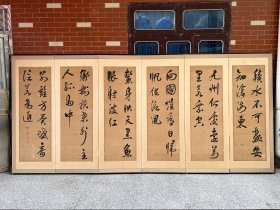 積水不可極安
知滄海東
九州何處遠萬
里若乘空
向國惟看日歸
帆但信風
鰲身映天黑魚
眼射波紅
鄉樹扶桑外主
人孤島中
別離方異域音
信若為通